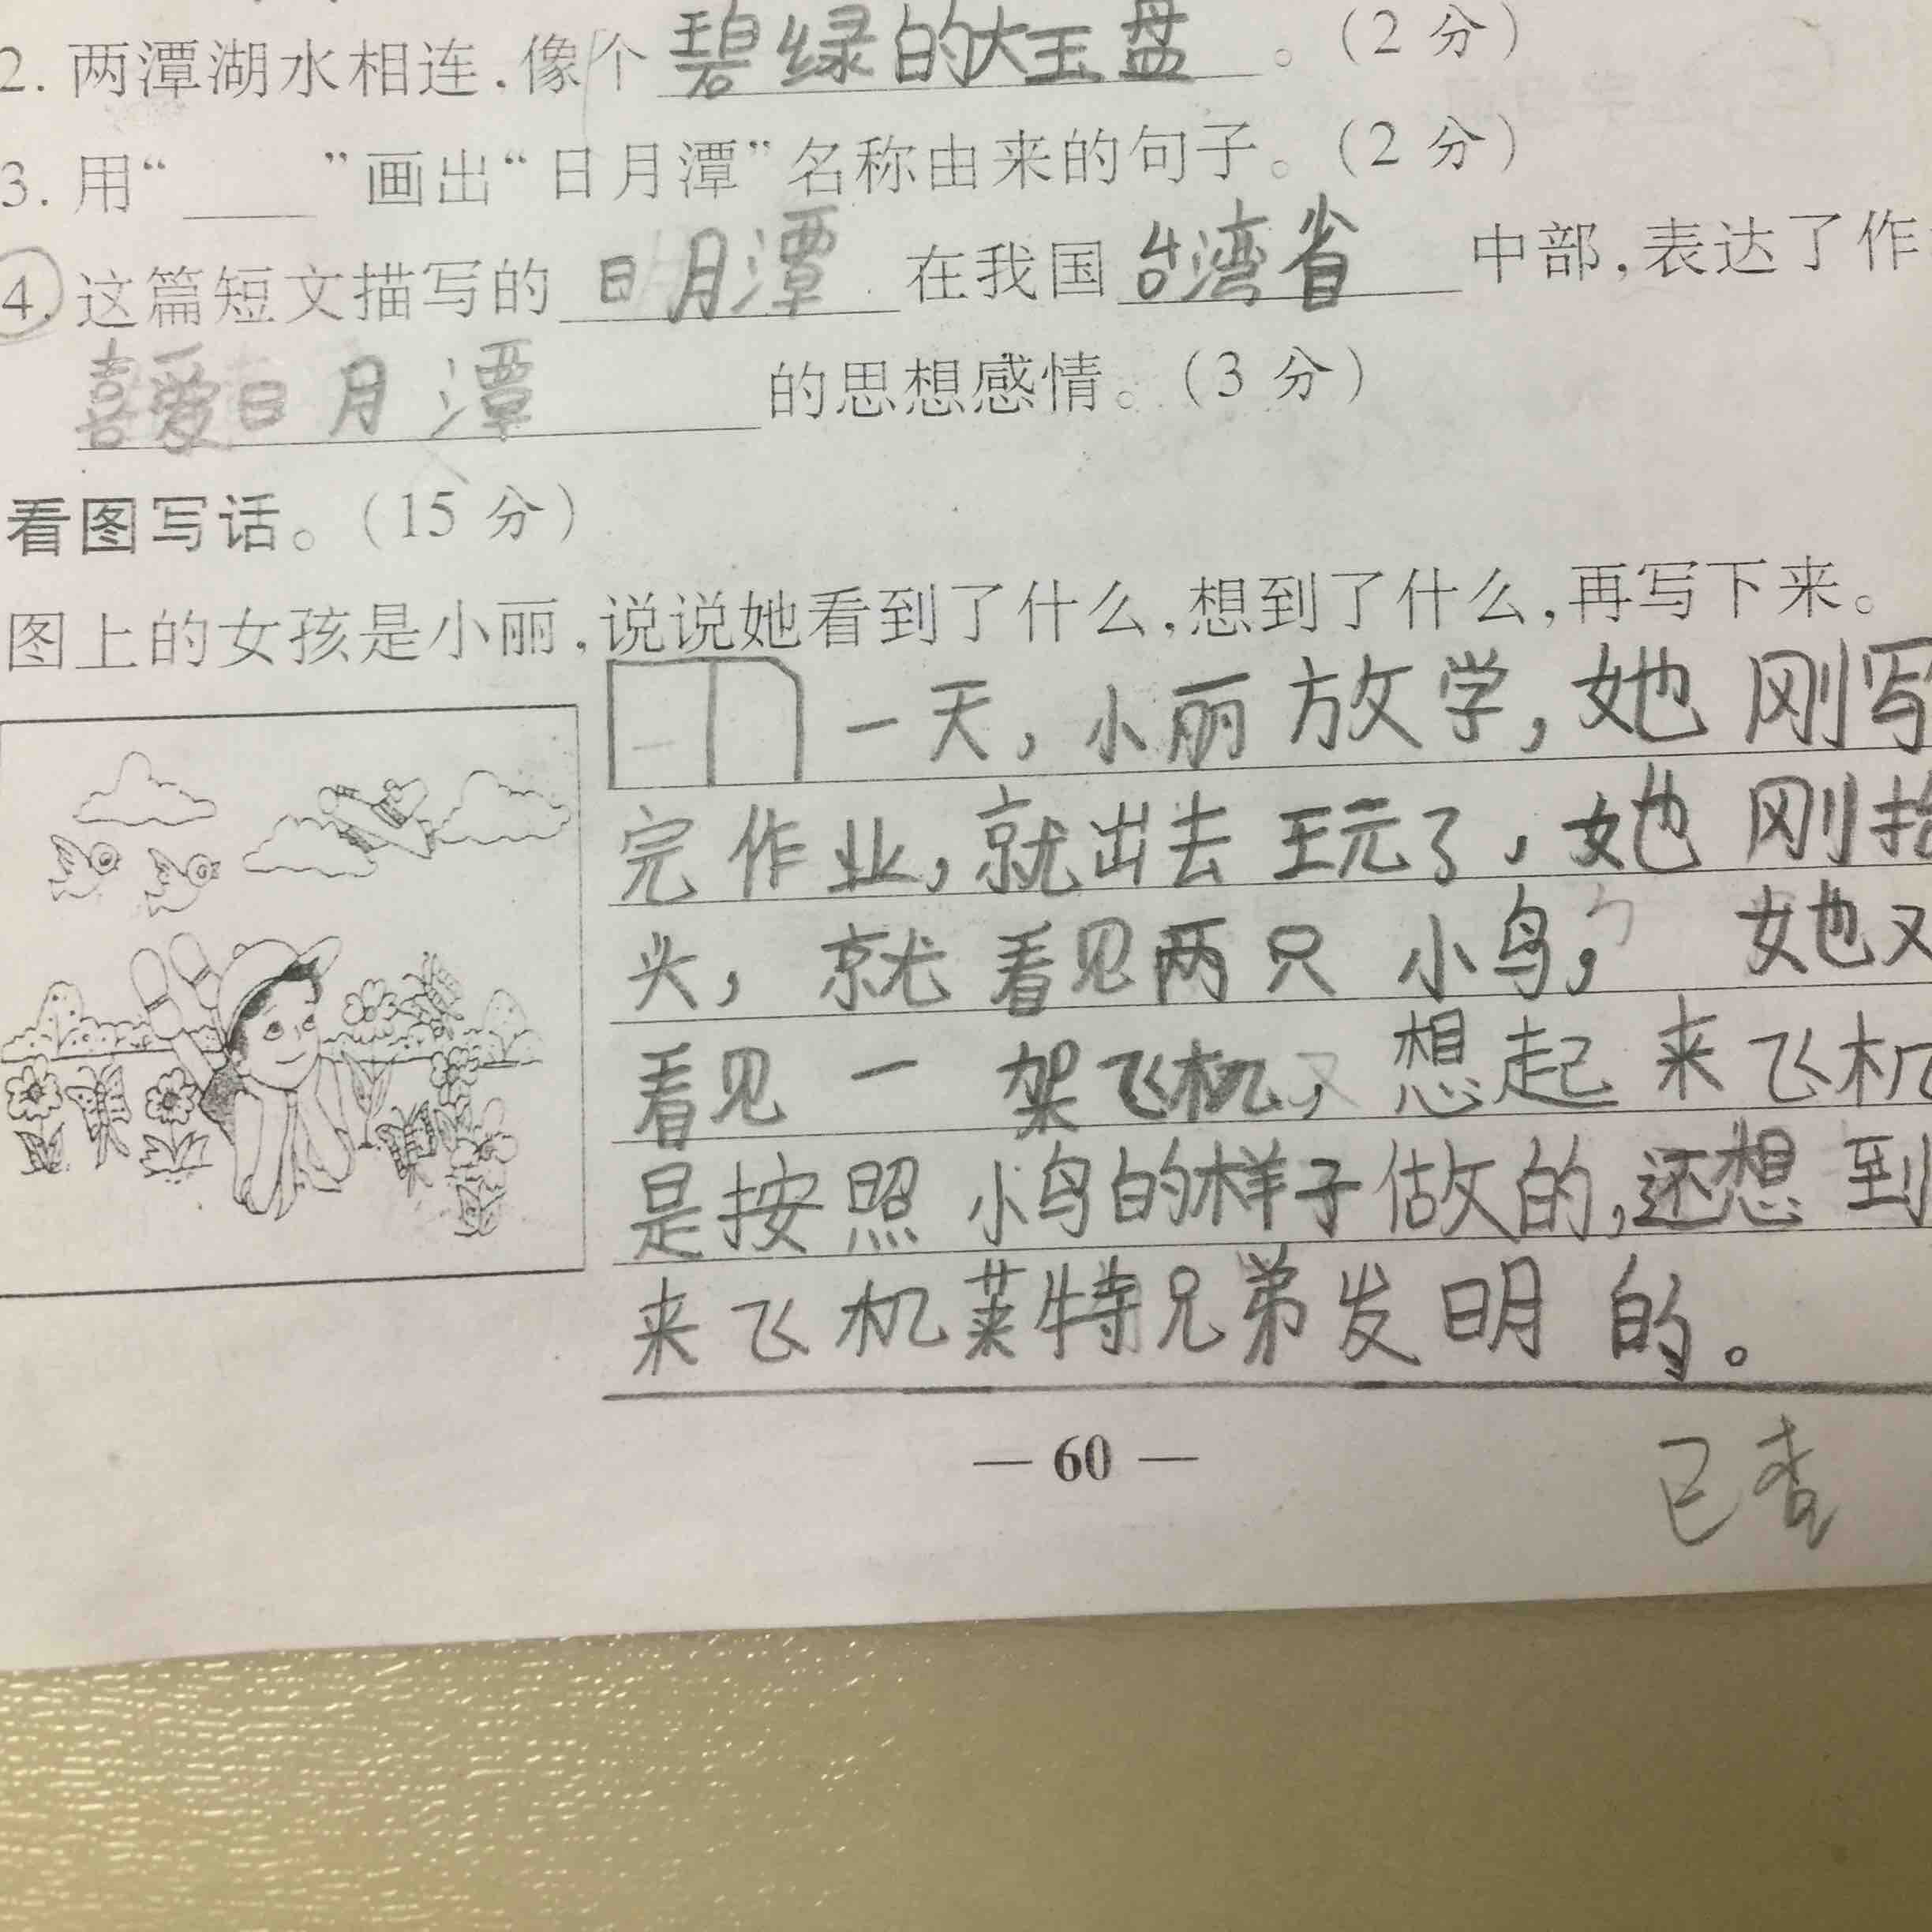 2. 两潭湖水相连,像个碧绿的大玉盘。(2 分)
3. 用“____”画出“日月潭”名称由来的句子。(2 分)
4. 这篇短文描写的日月潭在我国台湾省中部,表达了作
喜爱日月潭的思想感情。(3 分)
看图写话。(15 分)
图上的女孩是小丽,说说她看到了什么,想到了什么,再写下来。
一天,小丽放学,她刚写
完作业,就出去玩了,她刚抬
头,就看见两只小鸟,她又
看见一架飞机,想起来飞机
是按照小鸟的样子做的,还想到
来飞机莱特兄弟发明的。
— 60 —
已查